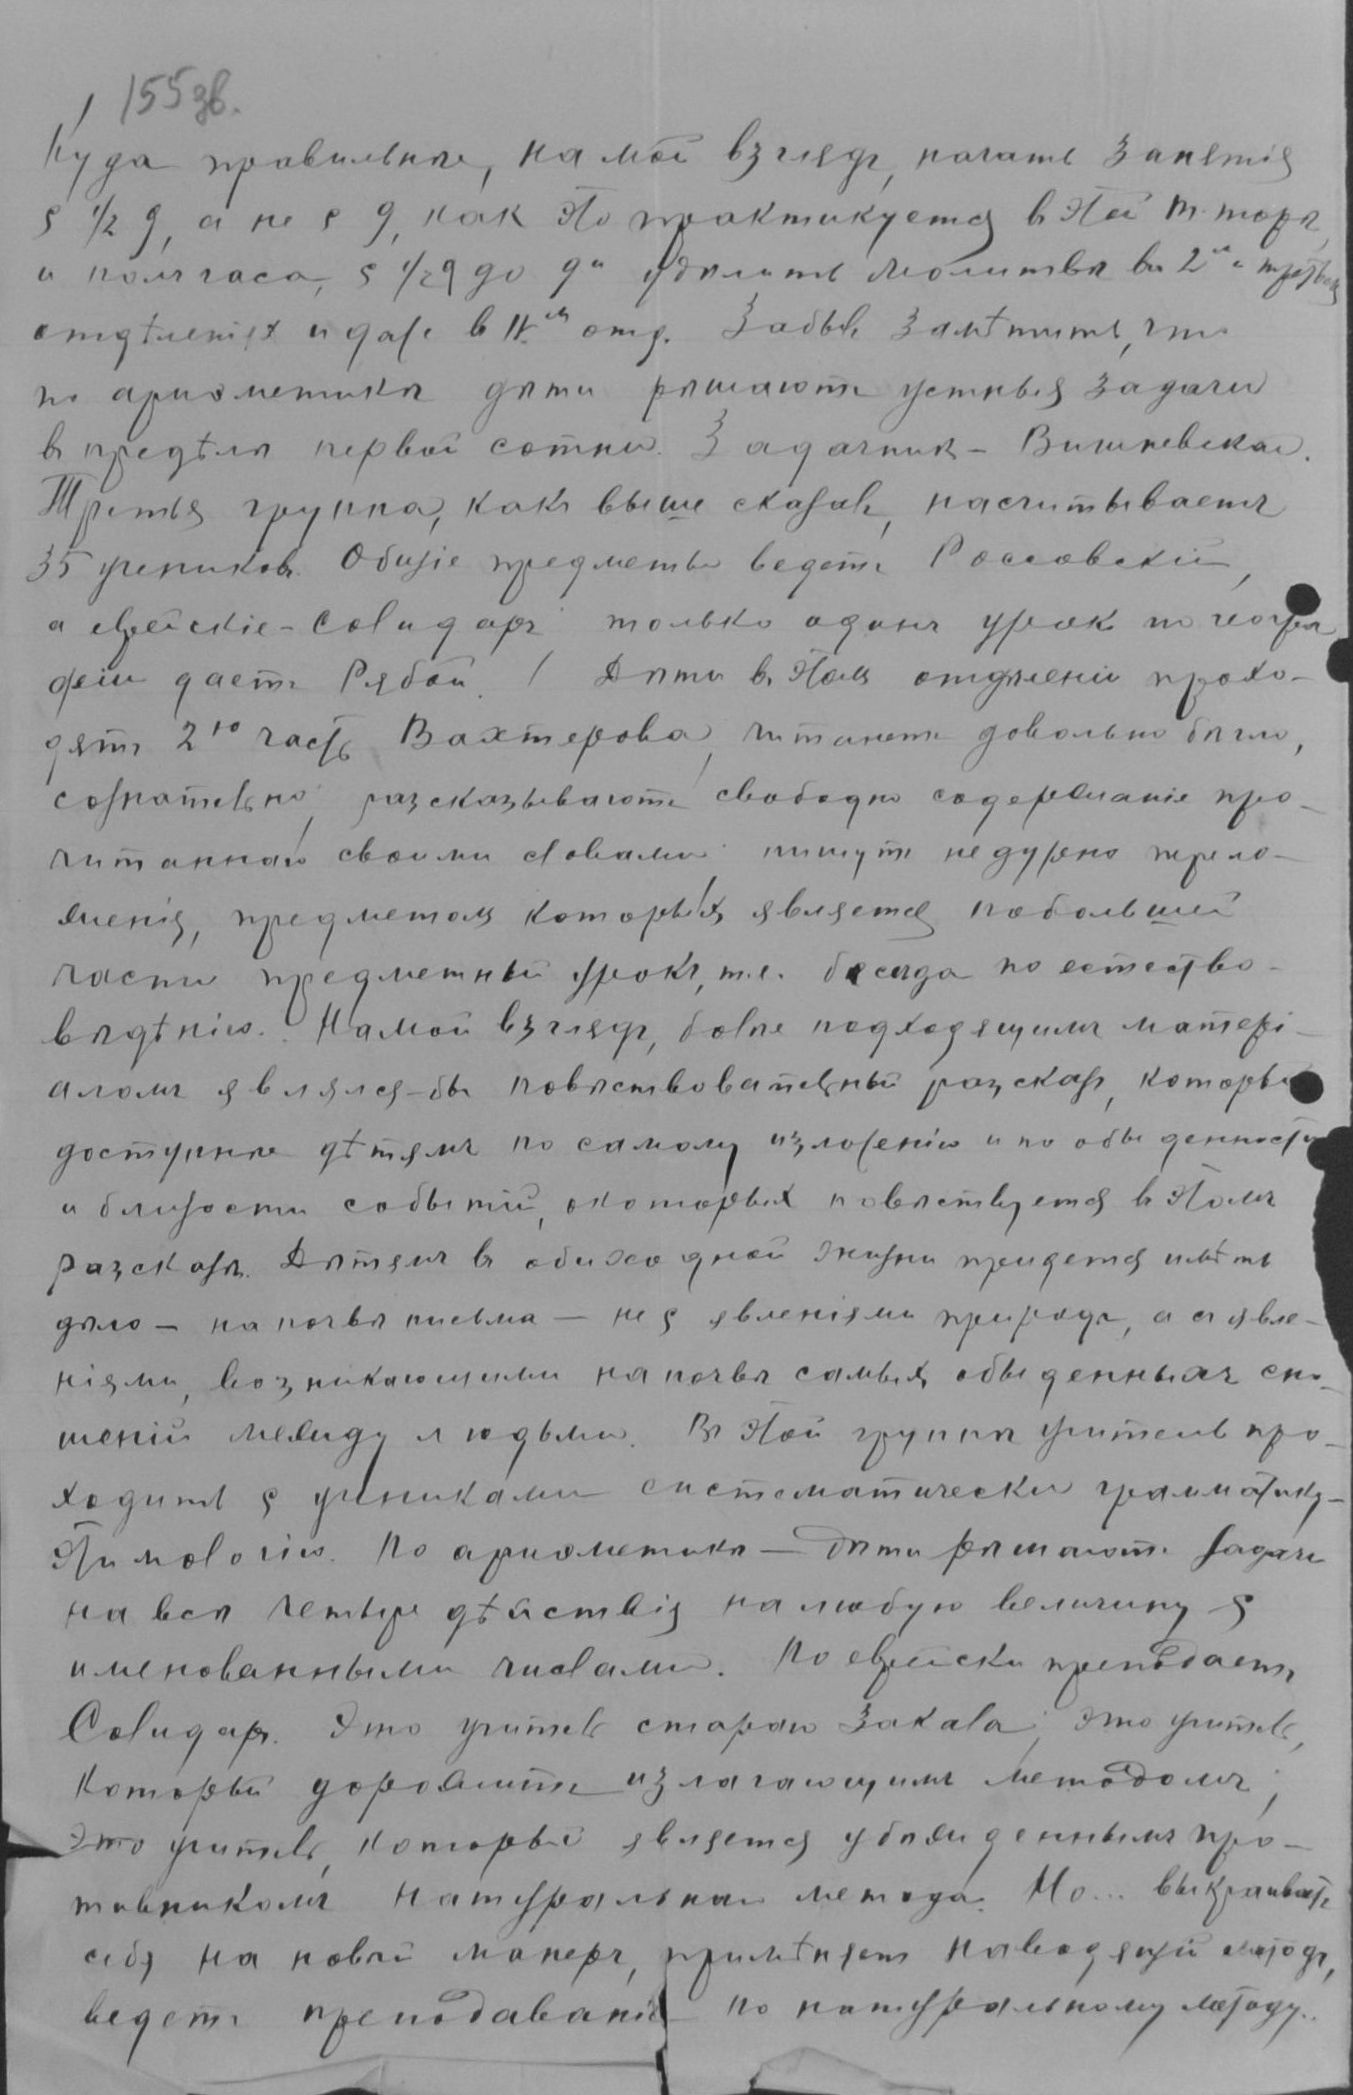 155 зв.
Куда правильнѣе, на мой взглядъ, начать занятія
с 1/2 9, а не с 9, как это практикуется в этой т-торѣ,
и полчаса, с 1/2 9 до 9и удѣлить молитвѣ во 2мъ и третьем
отдѣленіях и даже в IVм отд. Забыл замѣтить, что
по ариѳметикѣ дѣти рѣшают устныя задачи
в предѣлѣ первой сотни. Задачник - Вишневскаго.
Третья группа, какъ выше сказал, насчитываетъ
35 учеников. Общіе предметы ведетъ Россовскій,
а еврейскіе - Солидаръ только один урок по геогра
фіи даетъ Рябой. Дѣти в этом отдѣленіи прохо-
дятъ 2ю часть Вахтерова, читаютъ довольно бѣгло,
сознательно, разсказываютъ свободно содержаніе про-
читаннаго своими словами пишутъ недурно перело-
женія, предметом которых является по большей
части предметный урокъ, т.е. бесѣда по естество-
вѣдѣнію. На мой взглядъ, болѣе подходящимъ матері-
аломъ являлся-бы повѣствовательный разсказъ, который
доступнѣе дѣтямъ по самому изложенію и по обыденности
и близости событій, о которых повѣствуется в этомъ
разсказѣ. Дѣтямъ в обиходной жизни придется имѣть
дѣло - на почвѣ письма - не с явленіями природы, а съ явле-
ніями, возникающими на почвѣ самых обыденныхъ сно-
шеній между людьми. Въ этой группѣ учитель про-
ходитъ с учениками систематически грамматику-
этимологію. По ариѳметикѣ - дѣти рѣшаютъ задачи
на всѣ четыре дѣйствія на любую величину с
именованными числами. По еврейски преподаетъ
Солидаръ. Это учитель стараго закала; это учитель,
который дорожитъ излагающимъ методомъ;
это учитель, который является убѣжденнымъ про-
тивникомъ натуральнаго метода. Но...
себя на новый манеръ, примѣняет наводящій методъ,
ведетъ преподаваніе по натуральному методу..